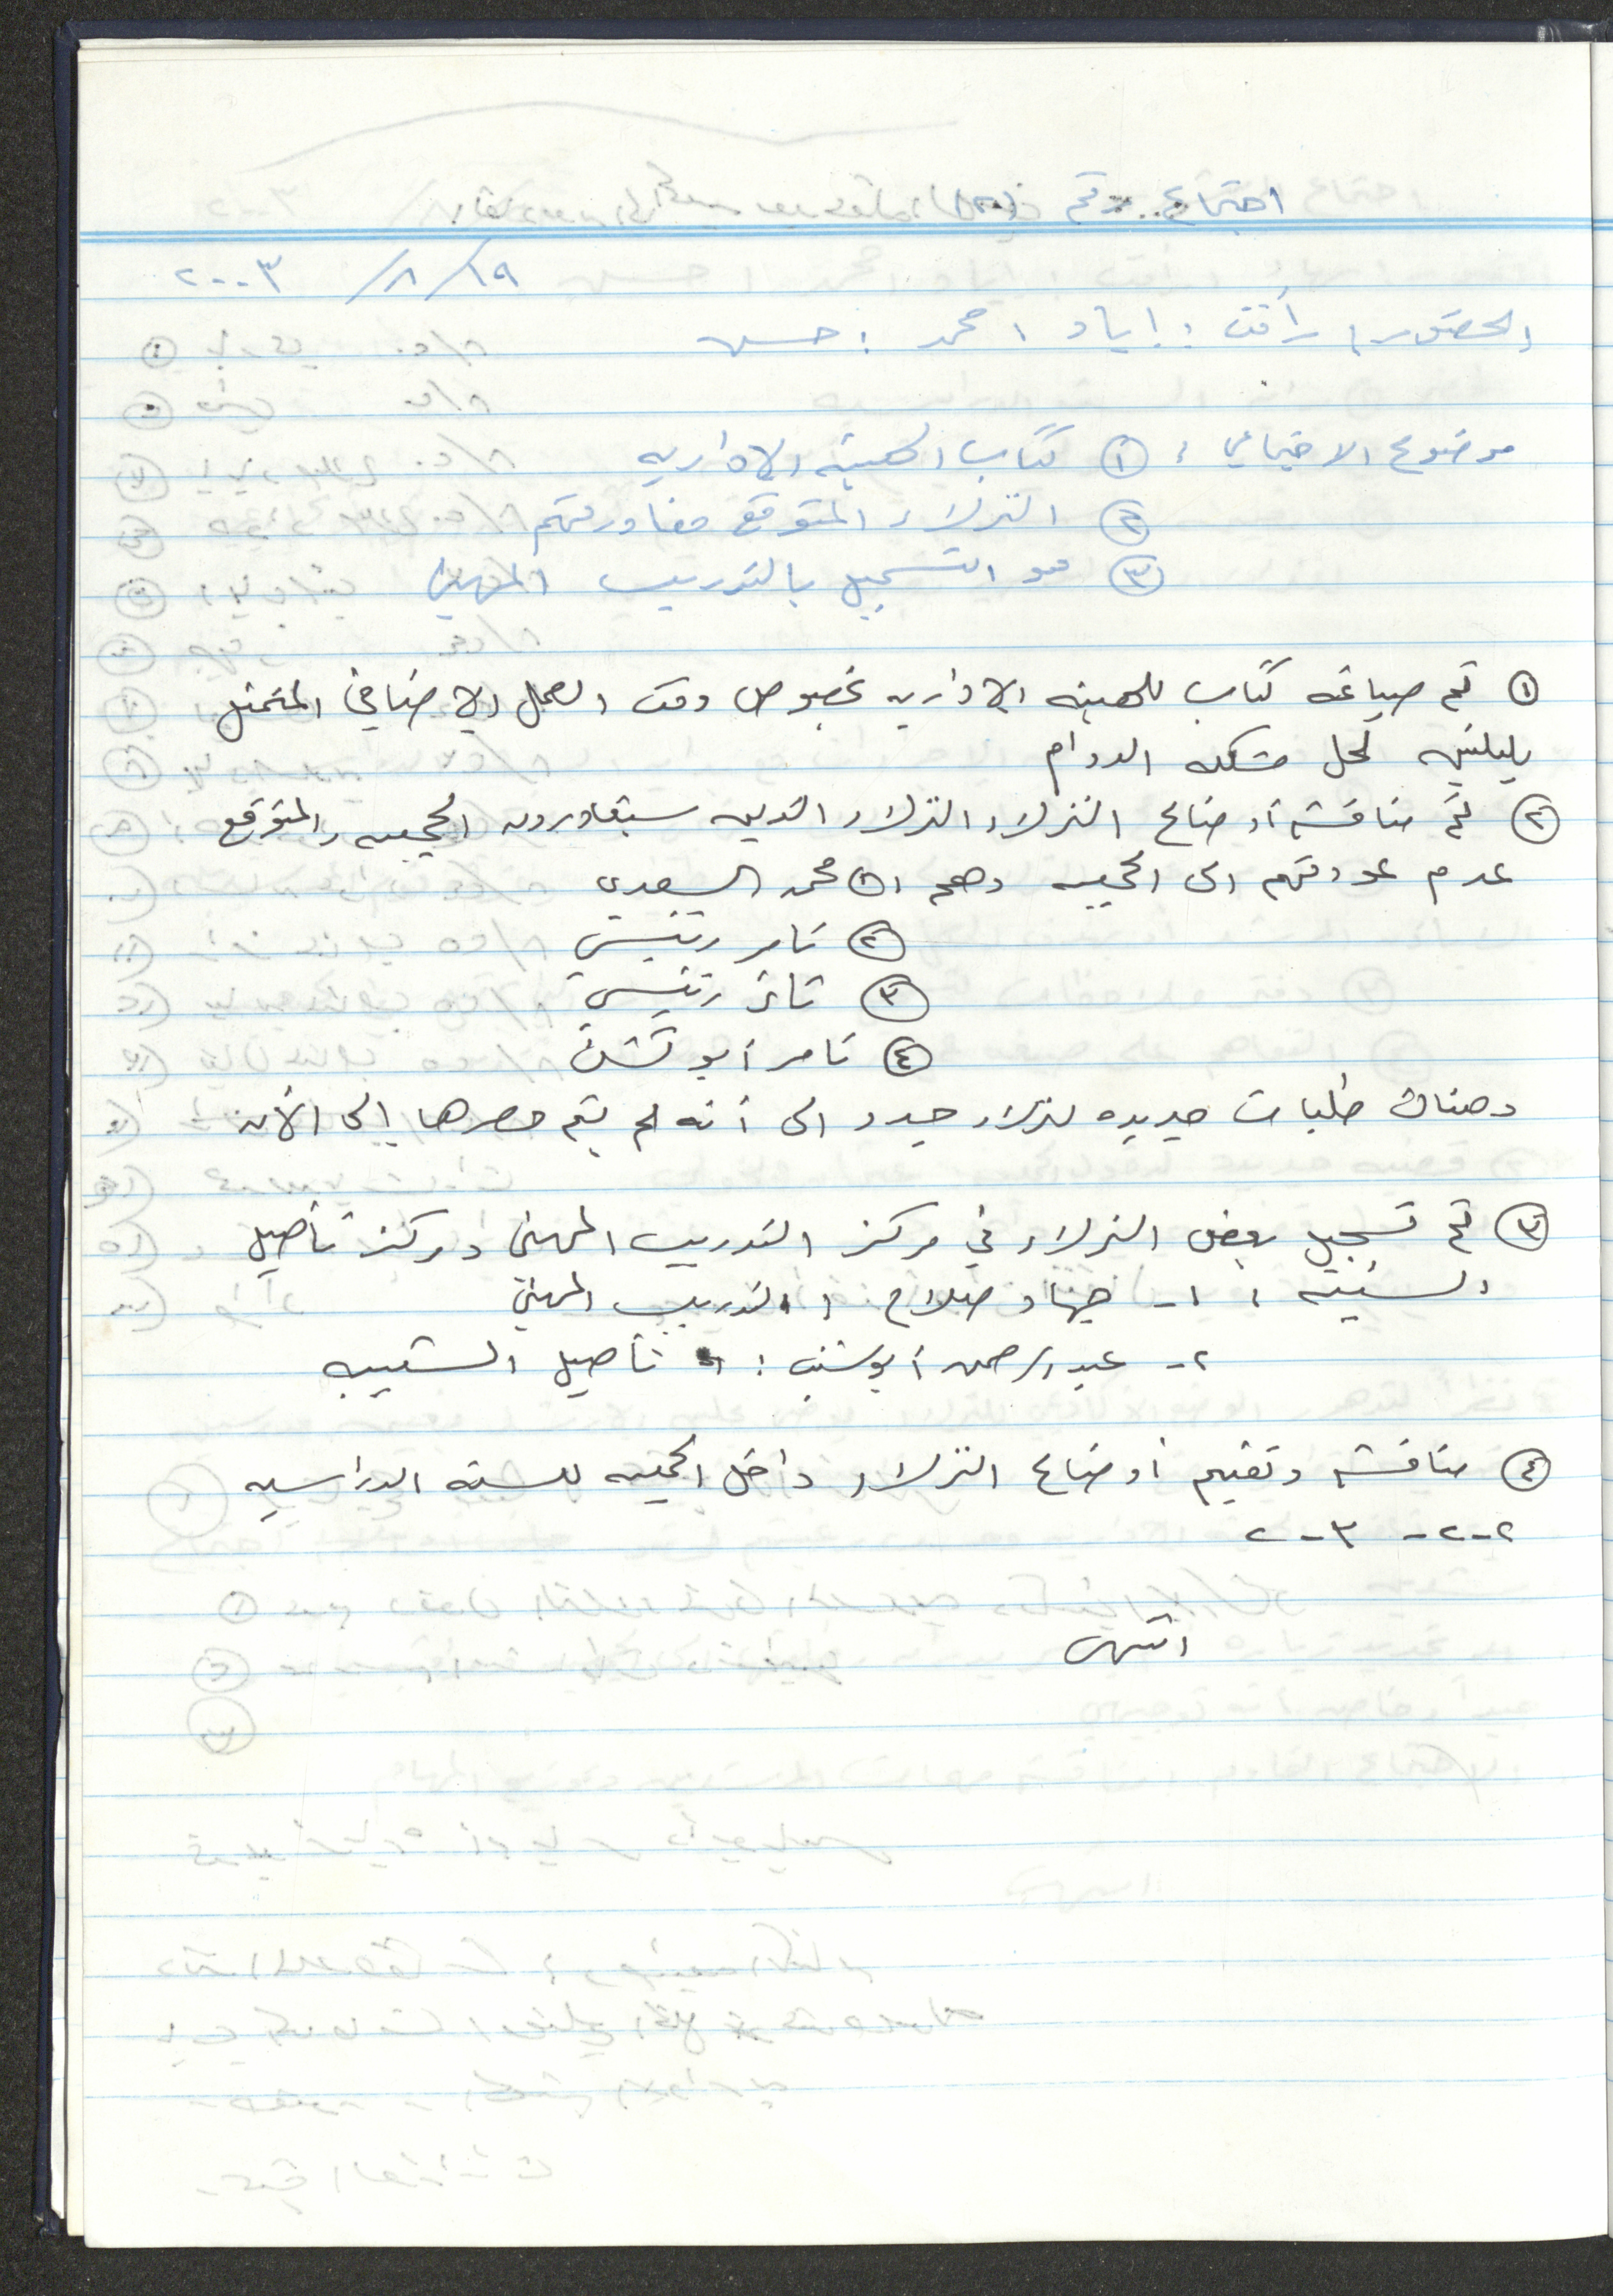 اجتماع رقم (٢)
١٩ / ٨ / ٢٠٠٣
الحضور : رأفت ، اياد ، محمد ، حسن
موضوع الاجتماع : ① كتاب الهيئه الاداريه
② النزلاء المتوقع مغادرتهم
③ التسجيل بالتدريب المهني
① تم صياغه كتاب للهيئه الاداريه بخصوص وقت العمل الاضافي المتمثل
بليلتين لحل مشكله الدوام
② تم مناقشة أوضاع النزلاء النزلاء الذين سيغادرون الجمعيه والمتوقع
عدم عودتهم الى الجمعيه وهم ① محمد السعدي
② تامر رنتيسي
③ ثائر رنتيسي
④ تامر أبو
وهناك طلبات جديده لنزلاء جدد الى أنه لم يتم حصرها إلى الأن
③ تم تسجيل بعض النزلاء في مركز التدريب المهني ومركز تأهيل
الشبيبه : ١- جهاد صلاح : التدريب المهني
٢- عبد الرحمن أبو شنب : تأهيل الشبيبه
④ مناقشة وتقيم أوضاع النزلاء داخل الجمعيه للسنه الدراسيه
٢٠٠٢ - ٢٠٠٣
انتهى